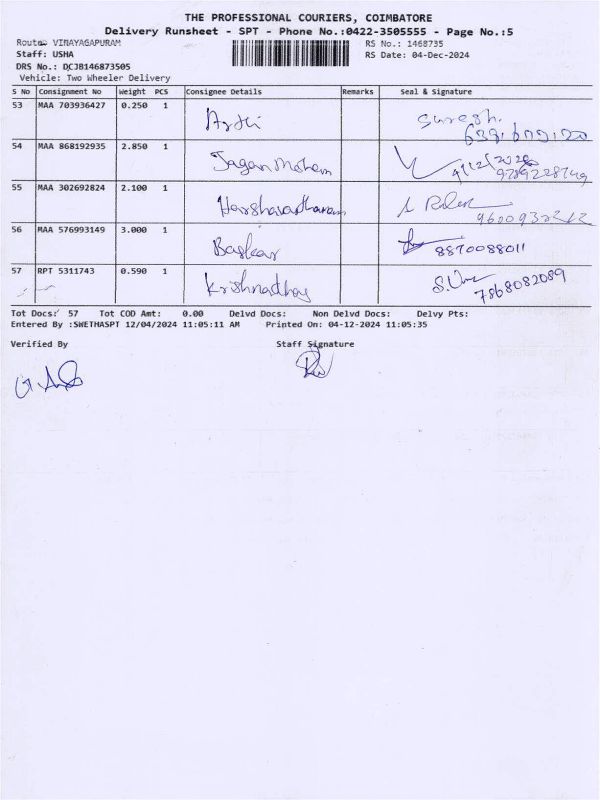 THE PROFESSIONAL COURIERS, COIMBATORE
Delivery Runsheet - SPT - Phone No.:0422-3505555 - Page No.:5
Route: VINAYAGAPURAM
RS No.: 1468735
Staff: USHA
RS Date: 04-Dec-2024
DRS No.: DCJB146873505
Vehicle: Two Wheeler Delivery
S No Consignment No Weight PCS Consignee Details Remarks Seal & Signature
53 MAA 703936427 0.250 1 Arthi Suresh.
54 MAA 868192935 2.850 1 Jagan Mohan 4/12/2024
9789228749
55 MAA 302692824 2.100 1 Harshavardhanam
56 MAA 576993149 3.000 1 Baskar 8870088011
57 RPT 5311743 0.590 1 S.Uma
7868082089
Tot Docs: 57 Tot COD Amt: 0.00 Delvd Docs: Non Delvd Docs: Delvy Pts:
Entered By :SWETHASPT 12/04/2024 11:05:11 AM Printed On: 04-12-2024 11:05:35
Verified By Staff Signature